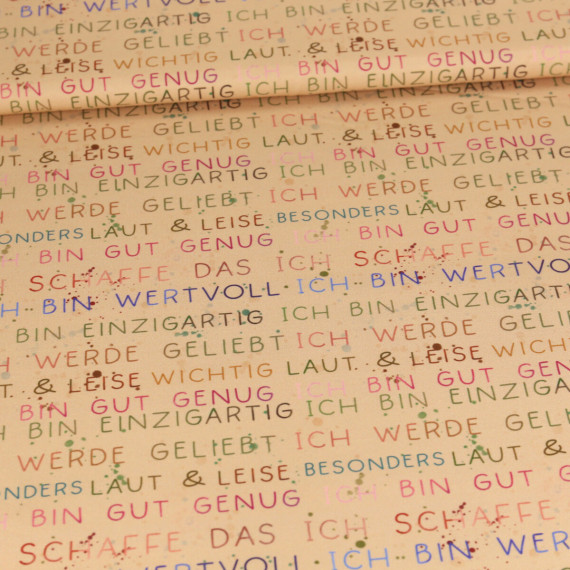 BIN WERTVOLL ICH
BIN EINZIGARTIG ICH BIN EINZIGARTIG
WERDE GELIEBT ICH WERDE GELIEBT ICH
& LEISE WICHTIG LAUT & LEISE WICHTIG LAUT
BIN GUT GENUG ICH BIN GUT GENUG
BIN EINZIGARTIG ICH BIN EINZIGARTIG
BIN EINZIGARTIG ICH BIN EINZIGARTIG
ICH WERDE GELIEBT ICH WERDE GELIEBT
LAUT & LEISE WICHTIG LAUT & LEISE WICHTIG
BIN GUT GENUG ICH BIN GUT GENUG
ICH BIN EINZIGARTIG ICH BIN EINZIGARTIG
WERDE GELIEBT ICH WERDE GELIEBT
BESONDERS LAUT & LEISE BESONDERS LAUT & LEISE
BIN GUT GENUG ICH BIN GUT GENUG
SCHAFFE DAS ICH SCHAFFE DAS
ICH BIN WERTVOLL ICH BIN WERTVOLL
BIN EINZIGARTIG ICH BIN EINZIGARTIG
WERDE GELIEBT ICH WERDE GELIEBT
& LEISE WICHTIG LAUT & LEISE WICHTIG
BIN GUT GENUG ICH BIN GUT GENUG
BIN EINZIGARTIG ICH BIN EINZIGARTIG
WERDE GELIEBT ICH WERDE GELIEBT
BESONDERS LAUT & LEISE BESONDERS LAUT &
BIN GUT GENUG ICH BIN GUT
SCHAFFE DAS ICH SCHAFFE
WERTVOLL ICH BIN WERTVOLL